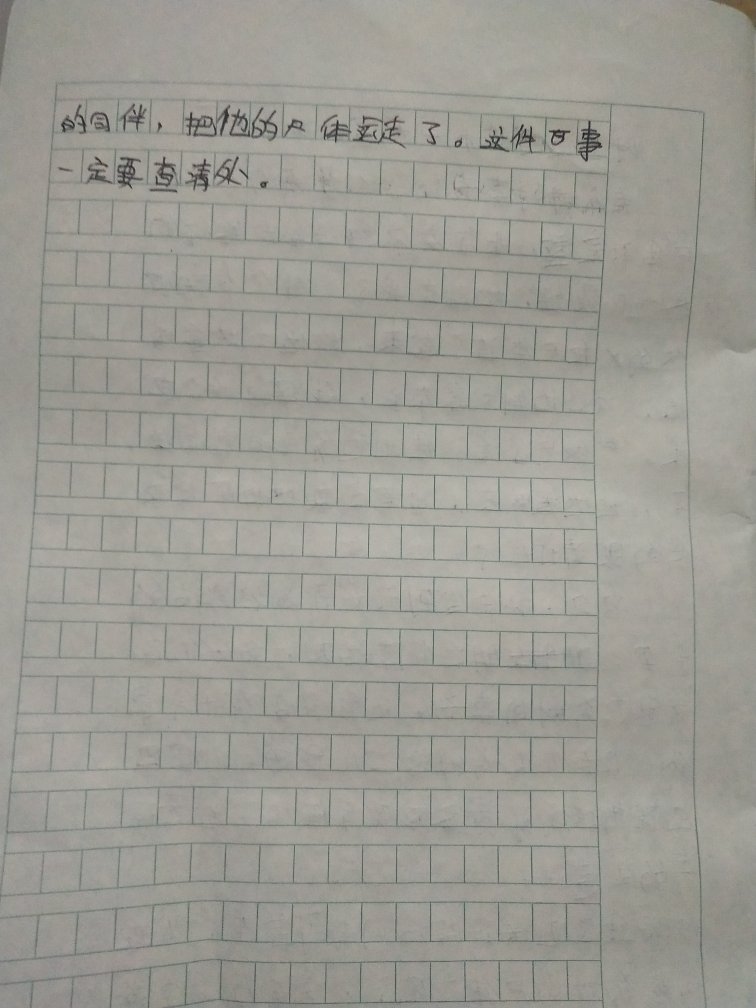 的同伴，把他的尸体运走了。这件事
一定要查清处。